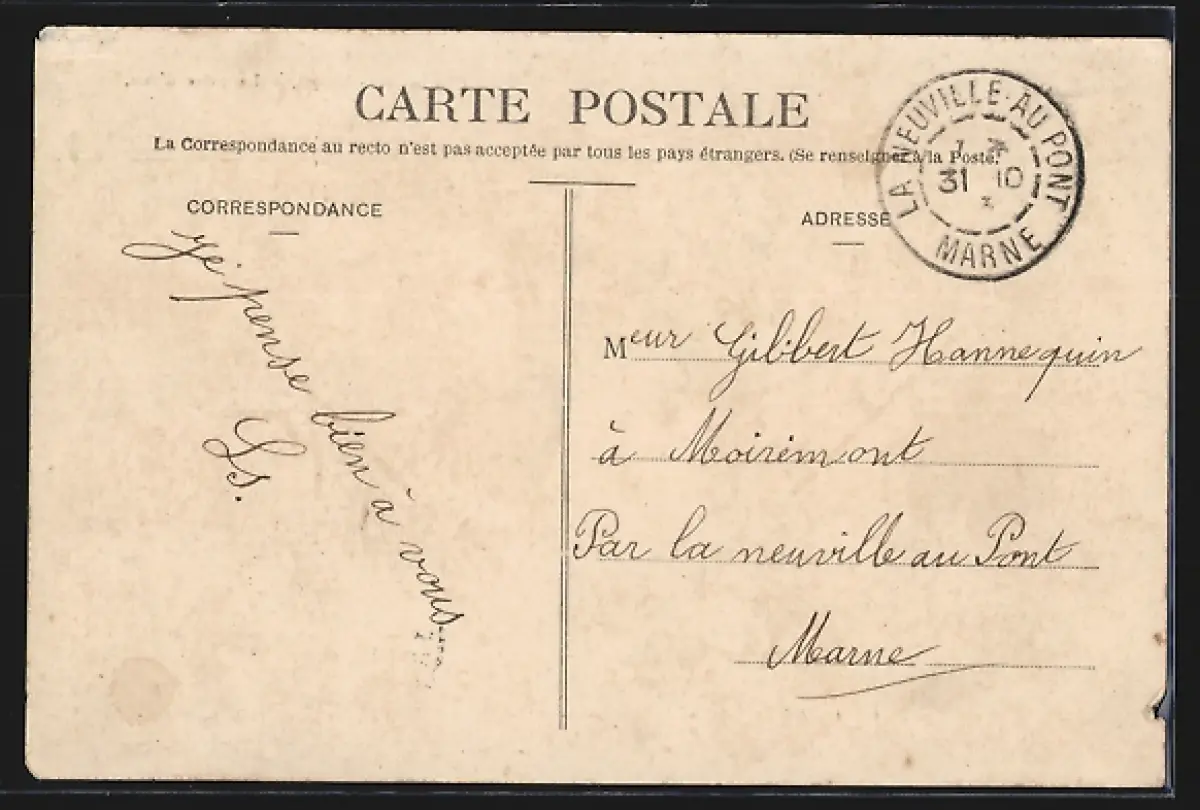 CARTE POSTALE
La Correspondance au recto n'est pas acceptée par tous les pays étrangers. (Se renseigner à la Poste.)
CORRESPONDANCE
Je pense bien à vous
Ls.
ADRESSE
LA NEUVILLE-AU PONT
31 10
MARNE
Meur Gilbert Hannequin
à Moirémont
Par la neuville au Pont
Marne